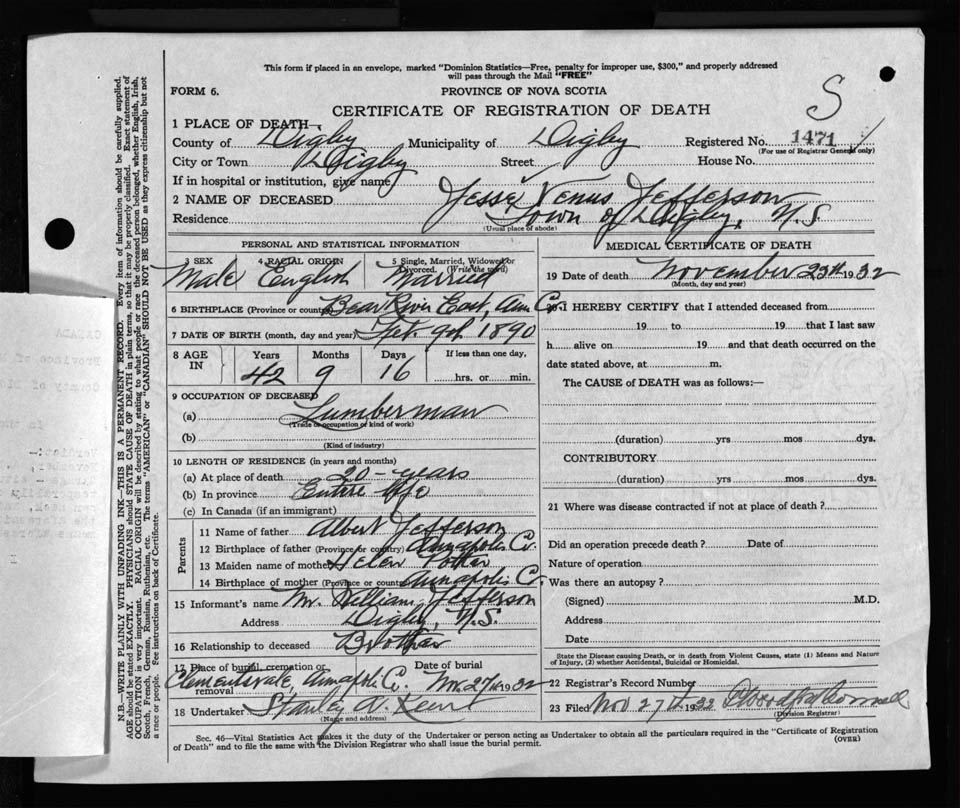 This form if placed in an envelope, marked "Dominion Statistics—Free, penalty for improper use, $300," and properly addressed
will pass through the Mail "FREE"
FORM 6.
PROVINCE OF NOVA SCOTIA
S
CERTIFICATE OF REGISTRATION OF DEATH
1 PLACE OF DEATH—
County of Digby Municipality of Digby Registered No. 1471
(For use of Registrar General only)
City or Town Digby Street House No.
If in hospital or institution, give name
2 NAME OF DECEASED Jesse Venus Jefferson
Residence Town of Digby, N.S.
(Usual place of abode)
PERSONAL AND STATISTICAL INFORMATION
3 SEX 4 RACIAL ORIGIN 5 Single, Married, Widowed or
Divorced. (Write the word)
Male English Married
6 BIRTHPLACE (Province or country) Bear River East, Ann. Co.
7 DATE OF BIRTH (month, day and year) Feb. 9th 1890
8 AGE IN Years Months Days If less than one day,
42 9 16 hrs. or min.
9 OCCUPATION OF DECEASED
(a) Lumberman
(Trade or occupation or kind of work)
(b)
(Kind of industry)
10 LENGTH OF RESIDENCE (in years and months)
(a) At place of death 20 years
(b) In province Entire life
(c) In Canada (if an immigrant)
Parents
11 Name of father Albert Jefferson
12 Birthplace of father (Province or country) Annapolis Co.
13 Maiden name of mother Helen Potter
14 Birthplace of mother (Province or country) Annapolis Co.
15 Informant's name Mr. William Jefferson
Address Digby, N.S.
16 Relationship to deceased Brother
17 Place of burial, cremation or removal Date of burial
Clementsvale, Annapolis Co. Nov. 27th 1932
18 Undertaker Stanley
(Name and address)
MEDICAL CERTIFICATE OF DEATH
19 Date of death November 25th 1932
(Month, day and year)
20 I HEREBY CERTIFY that I attended deceased from
19 to 19 that I last saw
h alive on 19 and that death occurred on the
date stated above, at m.
The CAUSE of DEATH was as follows:—
(duration) yrs mos dys.
CONTRIBUTORY
(duration) yrs mos dys.
21 Where was disease contracted if not at place of death?
Did an operation precede death? Date of
Nature of operation
Was there an autopsy?
(Signed) M.D.
Address
Date
State the Disease causing Death, or in death from Violent Causes, state (1) Means and Nature
of Injury, (2) whether Accidental, Suicidal or Homicidal.
22 Registrar's Record Number
23 Filed Nov 27th 1932
(Division Registrar)
Sec. 46—Vital Statistics Act makes it the duty of the Undertaker or person acting as Undertaker to obtain all the particulars required in the "Certificate of Registration
of Death" and to file the same with the Division Registrar who shall issue the burial permit.
(OVER)
N.B.—WRITE PLAINLY WITH UNFADING INK—THIS IS A PERMANENT RECORD. Every item of information should be carefully supplied.
AGE should be stated EXACTLY. PHYSICIANS should STATE CAUSE OF DEATH in plain terms, so that it may be properly classified. Exact statement of
OCCUPATION is very important. RACIAL ORIGIN will be described by stating to what people or race the deceased person belonged, whether English, Irish,
Scotch, French, German, Russian, Ruthenian, etc. The terms "AMERICAN" or "CANADIAN" SHOULD NOT BE USED as they express citizenship but not
a race or people. Fee instructions on back of Certificate.